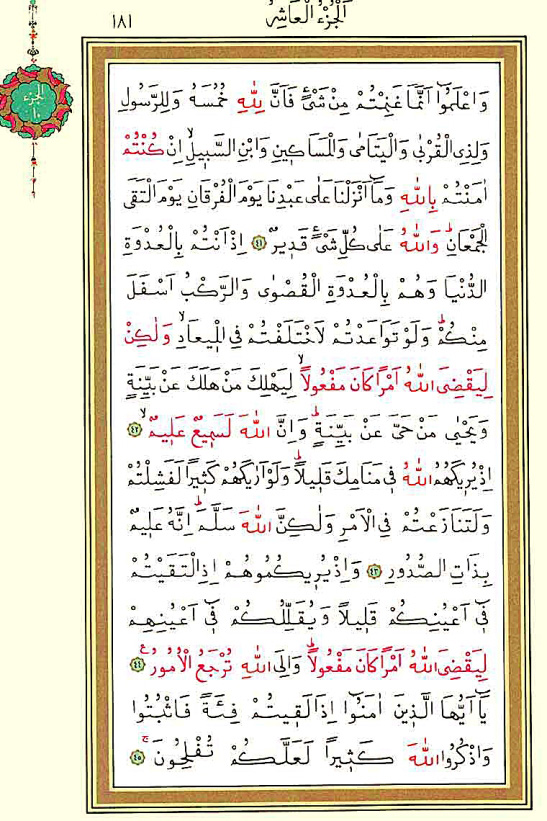 اَلْجُزْءُ الْعَاشِرُ
١٨١
الجزء
١٠
وَاعْلَمُٓوا اَنَّمَا غَنِمْتُمْ مِنْ شَيْءٍ فَاَنَّ لِلّٰهِ خُمُسَهُ وَلِلرَّسُولِ
وَلِذِي الْقُرْبٰى وَالْيَتَامٰى وَالْمَسَاك۪ينِ وَابْنِ السَّب۪يلِۙ اِنْ كُنْتُمْ
اٰمَنْتُمْ بِاللّٰهِ وَمَٓا اَنْزَلْنَا عَلٰى عَبْدِنَا يَوْمَ الْفُرْقَانِ يَوْمَ الْتَقَى
الْجَمْعَانِۜ وَاللّٰهُ عَلٰى كُلِّ شَيْءٍ قَد۪يرٌ ﴿٤١﴾ اِذْ اَنْتُمْ بِالْعُدْوَةِ
الدُّنْيَا وَهُمْ بِالْعُدْوَةِ الْقُصْوٰى وَالرَّكْبُ اَسْفَلَ
مِنْكُمْۜ وَلَوْ تَوَاعَدْتُمْ لَاخْتَلَفْتُمْ فِي الْم۪يعَادِۙ وَلٰكِنْ
لِيَقْضِيَ اللّٰهُ اَمْرًا كَانَ مَفْعُولًاۙ لِيَهْلِكَ مَنْ هَلَكَ عَنْ بَيِّنَةٍ
وَيَحْيٰى مَنْ حَيَّ عَنْ بَيِّنَةٍۜ وَاِنَّ اللّٰهَ لَسَم۪يعٌ عَل۪يمٌۙ ﴿٤٢﴾
اِذْ يُر۪يكَهُمُ اللّٰهُ ف۪ي مَنَامِكَ قَل۪يلًاۜ وَلَوْ اَرٰيكَهُمْ كَث۪يرًا لَفَشِلْتُمْ
وَلَتَنَازَعْتُمْ فِي الْاَمْرِ وَلٰكِنَّ اللّٰهَ سَلَّمَۜ اِنَّهُ عَل۪يمٌ
بِذَاتِ الصُّدُورِ ﴿٤٣﴾ وَاِذْ يُر۪يكُمُوهُمْ اِذِ الْتَقَيْتُمْ
ف۪ٓي اَعْيُنِكُمْ قَل۪يلًا وَيُقَلِّلُكُمْ ف۪ٓي اَعْيُنِهِمْ
لِيَقْضِيَ اللّٰهُ اَمْرًا كَانَ مَفْعُولًاۜ وَاِلَى اللّٰهِ تُرْجَعُ الْاُمُورُ۟ ﴿٤٤﴾
يَٓا اَيُّهَا الَّذ۪ينَ اٰمَنُٓوا اِذَا لَق۪يتُمْ فِئَةً فَاثْبُتُوا
وَاذْكُرُوا اللّٰهَ كَث۪يرًا لَعَلَّكُمْ تُفْلِحُونَۚ ﴿٤٥﴾